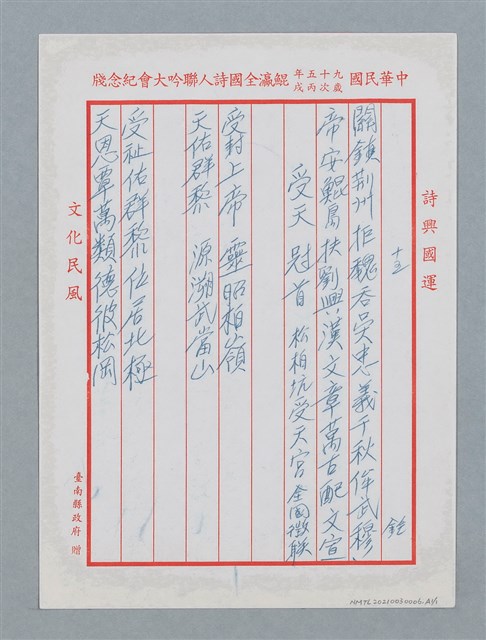 中華民國九十五年歲次丙戌鯤瀛全國詩人聯吟大會紀念牋
詩興國運
十五
關鎮荊州拒魏吞吳忠義千秋侔武穆
帝安鯤島扶劉興漢文章萬古配文宣
受天 冠首 松柏坑受天宮全國徵聯
受封上帝 靈昭柏嶺
天佑群黎 源溯武當山
受祉佑群黎位居北極
天恩覃萬類德被松岡
文化民風
臺南縣政府 贈
NMTL20210050006.A1/1